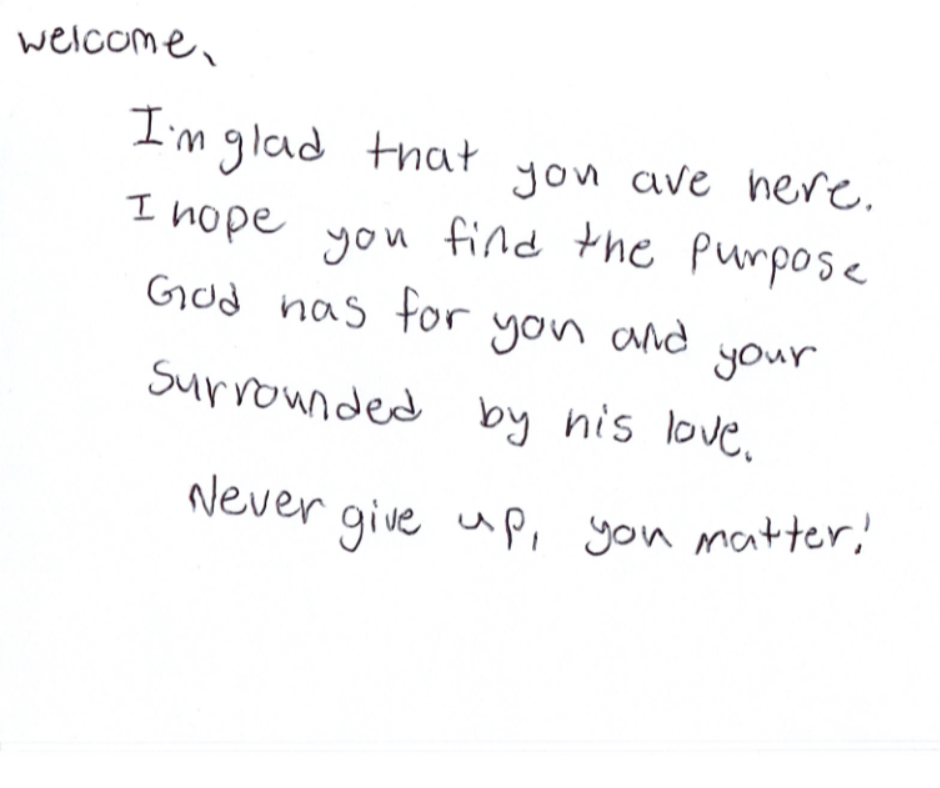 welcome,
I'm glad that you are here.
I hope you find the purpose
God has for you and your
surrounded by his love.
Never give up, you matter!